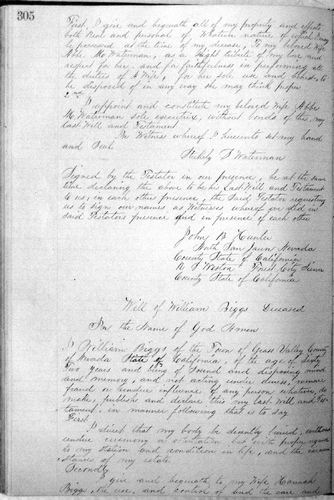 305
First, I give and bequeath all of my property and effects
both Real and personal of Whatever nature of which I may
be possessed at the time of my decease, To my beloved Wife
Abbe M. Waterman, as a slight tribute of my love and
respect for her, and for faithfulness in performing all
the duties of a Wife, for her sole use and behoof, to
be disposed of in any way she may think proper
2nd
I appoint and constitute my beloved Wife Abbe
M. Waterman sole executrix, without bonds of this my
last Will and Testament.
In Witness whereof I hereunto set my hand
and Seal.
Waterman
Signed by the Testator in our presence, he at the same
time declaring the above to be his Last Will and Testament
& us, in each other presence, the said Testator requesting
us to sign our names as Witnesses whereof we did in
said Testators presence and in presence of each other
John B Hunter
North San Juan Nevada
County State of California
Weston Forest City Sierra
County State of California
Will of William Biggs Deceased
In the Name of God Amen
I William Biggs of the Town of Grass Valley County
of Nevada State of California, of the age of
two years and being of sound and disposing mind
and memory, and not acting under duress, menace
fraud or undue influence of any person whatever, do
make, publish and declare this my last Will and Tes-
tament, in manner following that is to say
First.
I direct that my body be decently buried, without
undue ceremony or ostentation but with proper regard
to my station and condition in life, and the circum
stances of my estate
Secondly.
I give and bequeath to my Wife Hannah
Biggs, the use, and control of and the care and